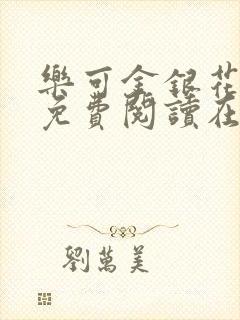 樂可金銀花
免費閱讀在
劉萬美